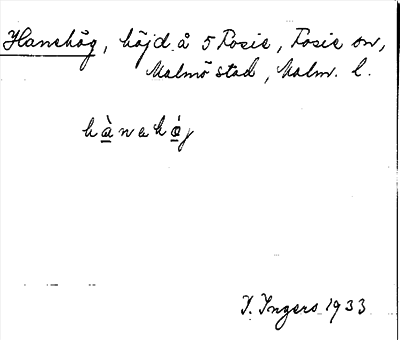 Hanehög, höjd å 5 Rosie, Rosie sn,
Malmö stad, Malm. l.
hànahój
I. Ingers 1933